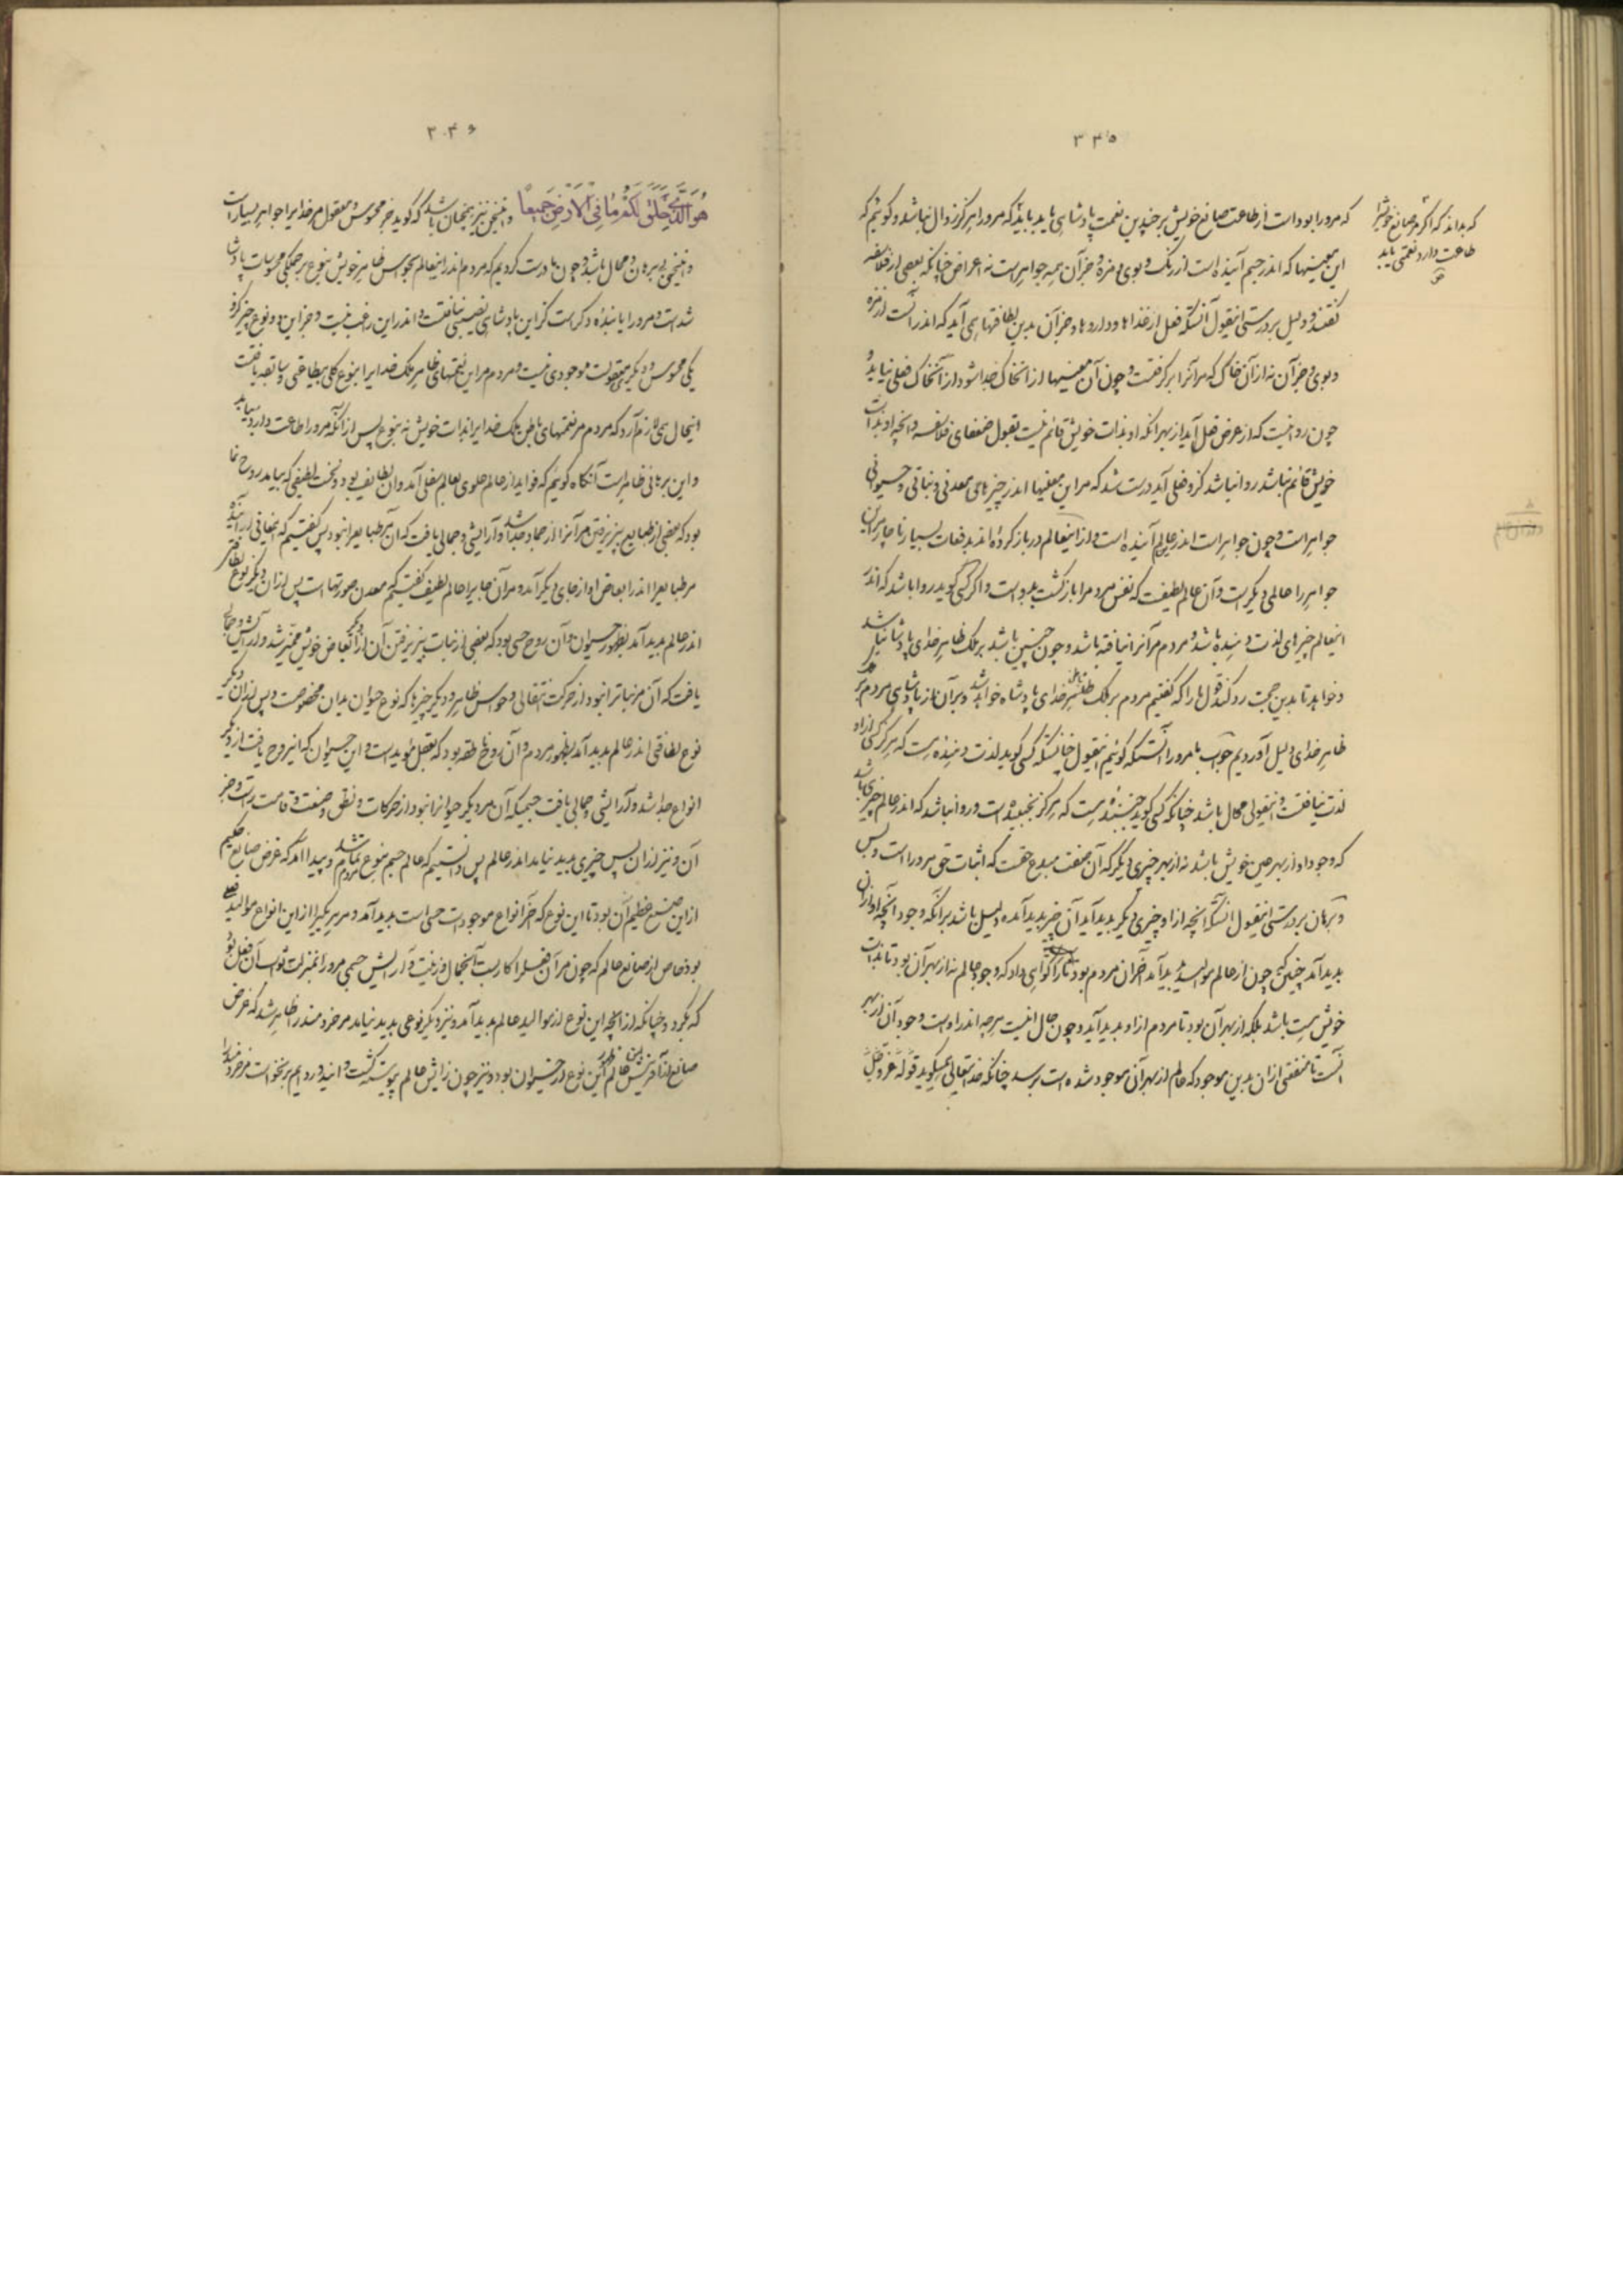 ۳۳۵
که مرورا بوده است از طاعت صانع خویش بر چندین نعمت پادشاهی باید بیابد که مرورا هرگز زوال نباشد و گوئیم که
که بداند که اگر مر صانع خویش را
طاعت دارد نعمتی باید
این معینها که اندر جسم آینده است از رنگ و بوی و مزه و جز آن همه جواهر است نه اعراض چنانکه بعضی از فلاسفه
گفتند و دلیل بر درستی اینقول آنستکه فعل از غذاها و داروها و جز آن بدین لطافتها همی آید که اندر آنست از مزه
و بوی و جز آن نه از آن خاک که مر آنرا بر گرفتست و چون آن معنیها از آنخاک جدا شود از آنخاک فعلی نیاید و
چون روا نیست که از عرض فعل آید از بهر آنکه او بذات خویش قائم نیست بقول ضعفای فلاسفه و آنچه او بذات
خویش قائم نباشد روا نباشد کزو فعلی آید درست شد که مر این معنیها اندر چیزهای معدنی و نباتی و حیوانی
جواهر است و چون جواهر است اندر عالم آینده است و از اینعالم در باز گردنده اند بدفعات بسیار ناچار مر این
جواهر را عالمی دیگر است و آن عالم لطیفست که نفس مردم را بازگشت بدوست و اگر کسی گوید روا باشد که اندر
اینعالم چیزهای لذت دهنده باشد و مردم مر آنرا نیافته باشد و چون چنین باشد بر ملک ظاهر خدای پادشا نباشد
و خواهد تا بدین حجت رد کند قول ما را که گفتیم مردم بر ملک باطن خدای پادشاه خواهد شد و بر آن از پادشاهی مردم بر
ظاهر خدای دلیل آوردیم جواب ما مرورا آنستکه گوئیم اینقول چنانستکه کسی گوید لذت دهنده ست که هرگز کسی ازو
لذت نیافتست و اینقولی محال باشد چنانکه کسی گوید جنبنده ایست که هرگز نجنبیده است و روا نباشد که اندر عالم چیزی باشد
که وجود او از بهر عین خویش باشد نه از بهر چیزی دیگر که آن صفت مبدع حقست که اثبات حق مرورا است و بس
و برهان بر درستی اینقول آنستکه آنچه از او چیزی دیگر پدید آید آن چیز پدید آمده دلیل باشد بر آنکه وجود آنچه او از آن
پدید آمد چنین گوئیم چون از عالم موالید پدید آمد آخر آن مردم بود ما را گواهی داد که وجود عالم نه از بهر آن بود تا بذات
خویش هست باشد بلکه از بهر آن بود تا مردم از او پدید آید و چون حال اینست هرچه اندر اوست وجود آن از بهر
آنست تا منفعتی از آن بدین موجود که عالم از بهر آن موجود شده است برسد چنانکه خدایتعالی همیگوید قوله عز و جل
۳۴۶
هُوَ الَّذِی خَلَقَ لَکُم مَّا فِی الأَرضِ جَمِیعًا و اینسخن نیز همچنان باشد که گوید جز محسوس و معقول مر خدایرا جواهر بسیار است
و اینسخن بی برهان و محال باشد و چون ما درست کردیم که مردم اندر اینعالم بحواس ظاهر خویش بنوع بر همگی محسوسات پادشا
شده است و مرورا یابنده دیگر است کز این پادشاهی نصیبی نیافتست و اندر این راغب نیست و جز این دو نوع چیز کزو
یکی محسوس و دیگر معقولست موجودی نیست و مردم مر این نعمتهای ظاهر ملک خدایرا بنوع کلی بیطاعتی و سابقه یافتست
اینحال همی لازم آرد که مردم مر نعمتهای باطن ملک خدایرا بذات خویش نه بنوع پس از آنکه مرورا طاعت دارد بیابد
و این برهانی ظاهر است آنگاه گوئیم که فواید از عالم علوی بعالم سفلی آمد و آن لطایف بود و نخست لطیفی که بیامد روح نما
بود که بعضی از طبایع بپذیرفتن مر آنرا از جماد جدا شد و آرایشی و جمالی یافت که آن مر طبایع را نبود پس گفتیم که معانی آراینده
مر طبایع را اندر ابعاض او از جای دیگر آمد و مر آن جایرا عالم لطیف گفتیم که معدن صورتها است پس از آن دیگر نوع لطافتی
اندر عالم پدید آمد بظهور حیوان و آن روح حسی بود که بعضی از نبات بپذیرفتن آن از دیگر ابعاض خویش ممیز شد و آرایش و جمالی
یافت که آن مر نباترا نبود از حرکت انتقالی و حواس ظاهر و دیگر چیزها که نوع حیوان بدان مخصوصست و پس از آن دیگر
نوع لطافتی اندر عالم پدید آمد بظهور مردم و آن روح ناطقه بود که بعقل مؤیدست و این حیوان که این روح یافت از دیگر
انواع جدا شد و آرایشی و جمالی یافت جسمی که آن مر دیگر حیوانرا نبود از حرکات و نطق و صنعت و قامت راست و جز
آن و نیز از آن پس چیزی پدید نیامد اندر عالم پس دانستیم که عالم جسم بنوع مردم تمام شد و پیدا آمد که غرض صانع حکیم
از این صنع عظیم آن بود تا این نوع که آخر انواع موجودات حسی است پدید آمد و مر هر یکیرا از این انواع موالید فعلی
بود خاص از صانع عالم که چون مر آن فعلرا کار بست آنجمال و زینت و آرایش جسمی مرورا بمنزلت ثواب آن فعل بود
که بکرد و چنانکه از آنچه این نوع از موالید عالم پدید آمد و نیز دیگر نوعی پدید نیامد مر خردمند را ظاهر شد که غرض
صانع از آفرینش عالم ظهور این نوع از حیوان بود و نیز چون زایش عالم پیوسته گشت و آینده و رونده برنخاست مر خردمند را